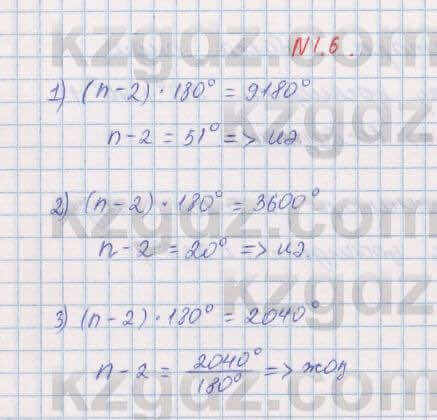 N1.6.
1) (n-2)·180° = 9180°
n-2 = 51° => иә.
2) (n-2)·180° = 3600°
n-2 = 20° => иә.
3) (n-2)·180° = 2040°
n-2 = 2040°/180° => жоқ
kzgdz.com